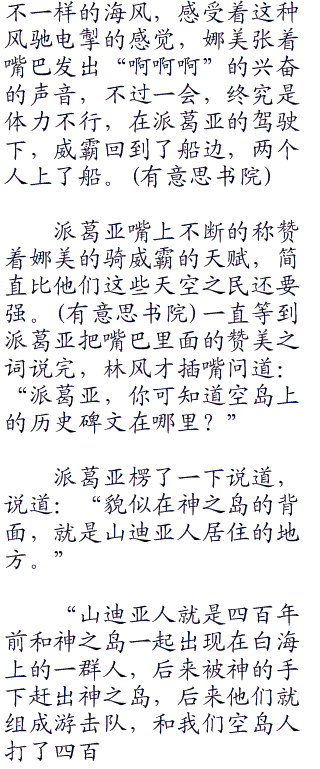 不一样的海风，感受着这种
风驰电掣的感觉，娜美张着
嘴巴发出“啊啊啊”的兴奋
的声音，不过一会，终究是
体力不行，在派葛亚的驾驶
下，威霸回到了船边，两个
人上了船。(有意思书院)
派葛亚嘴上不断的称赞
着娜美的骑威霸的天赋，简
直比他们这些天空之民还要
强。(有意思书院)一直等到
派葛亚把嘴巴里面的赞美之
词说完，林风才插嘴问道：
“派葛亚，你可知道空岛上
的历史碑文在哪里？”
派葛亚楞了一下说道，
说道：“貌似在神之岛的背
面，就是山迪亚人居住的地
方。”
“山迪亚人就是四百年
前和神之岛一起出现在白海
上的一群人，后来被神的手
下赶出神之岛，后来他们就
组成游击队，和我们空岛人
打了四百